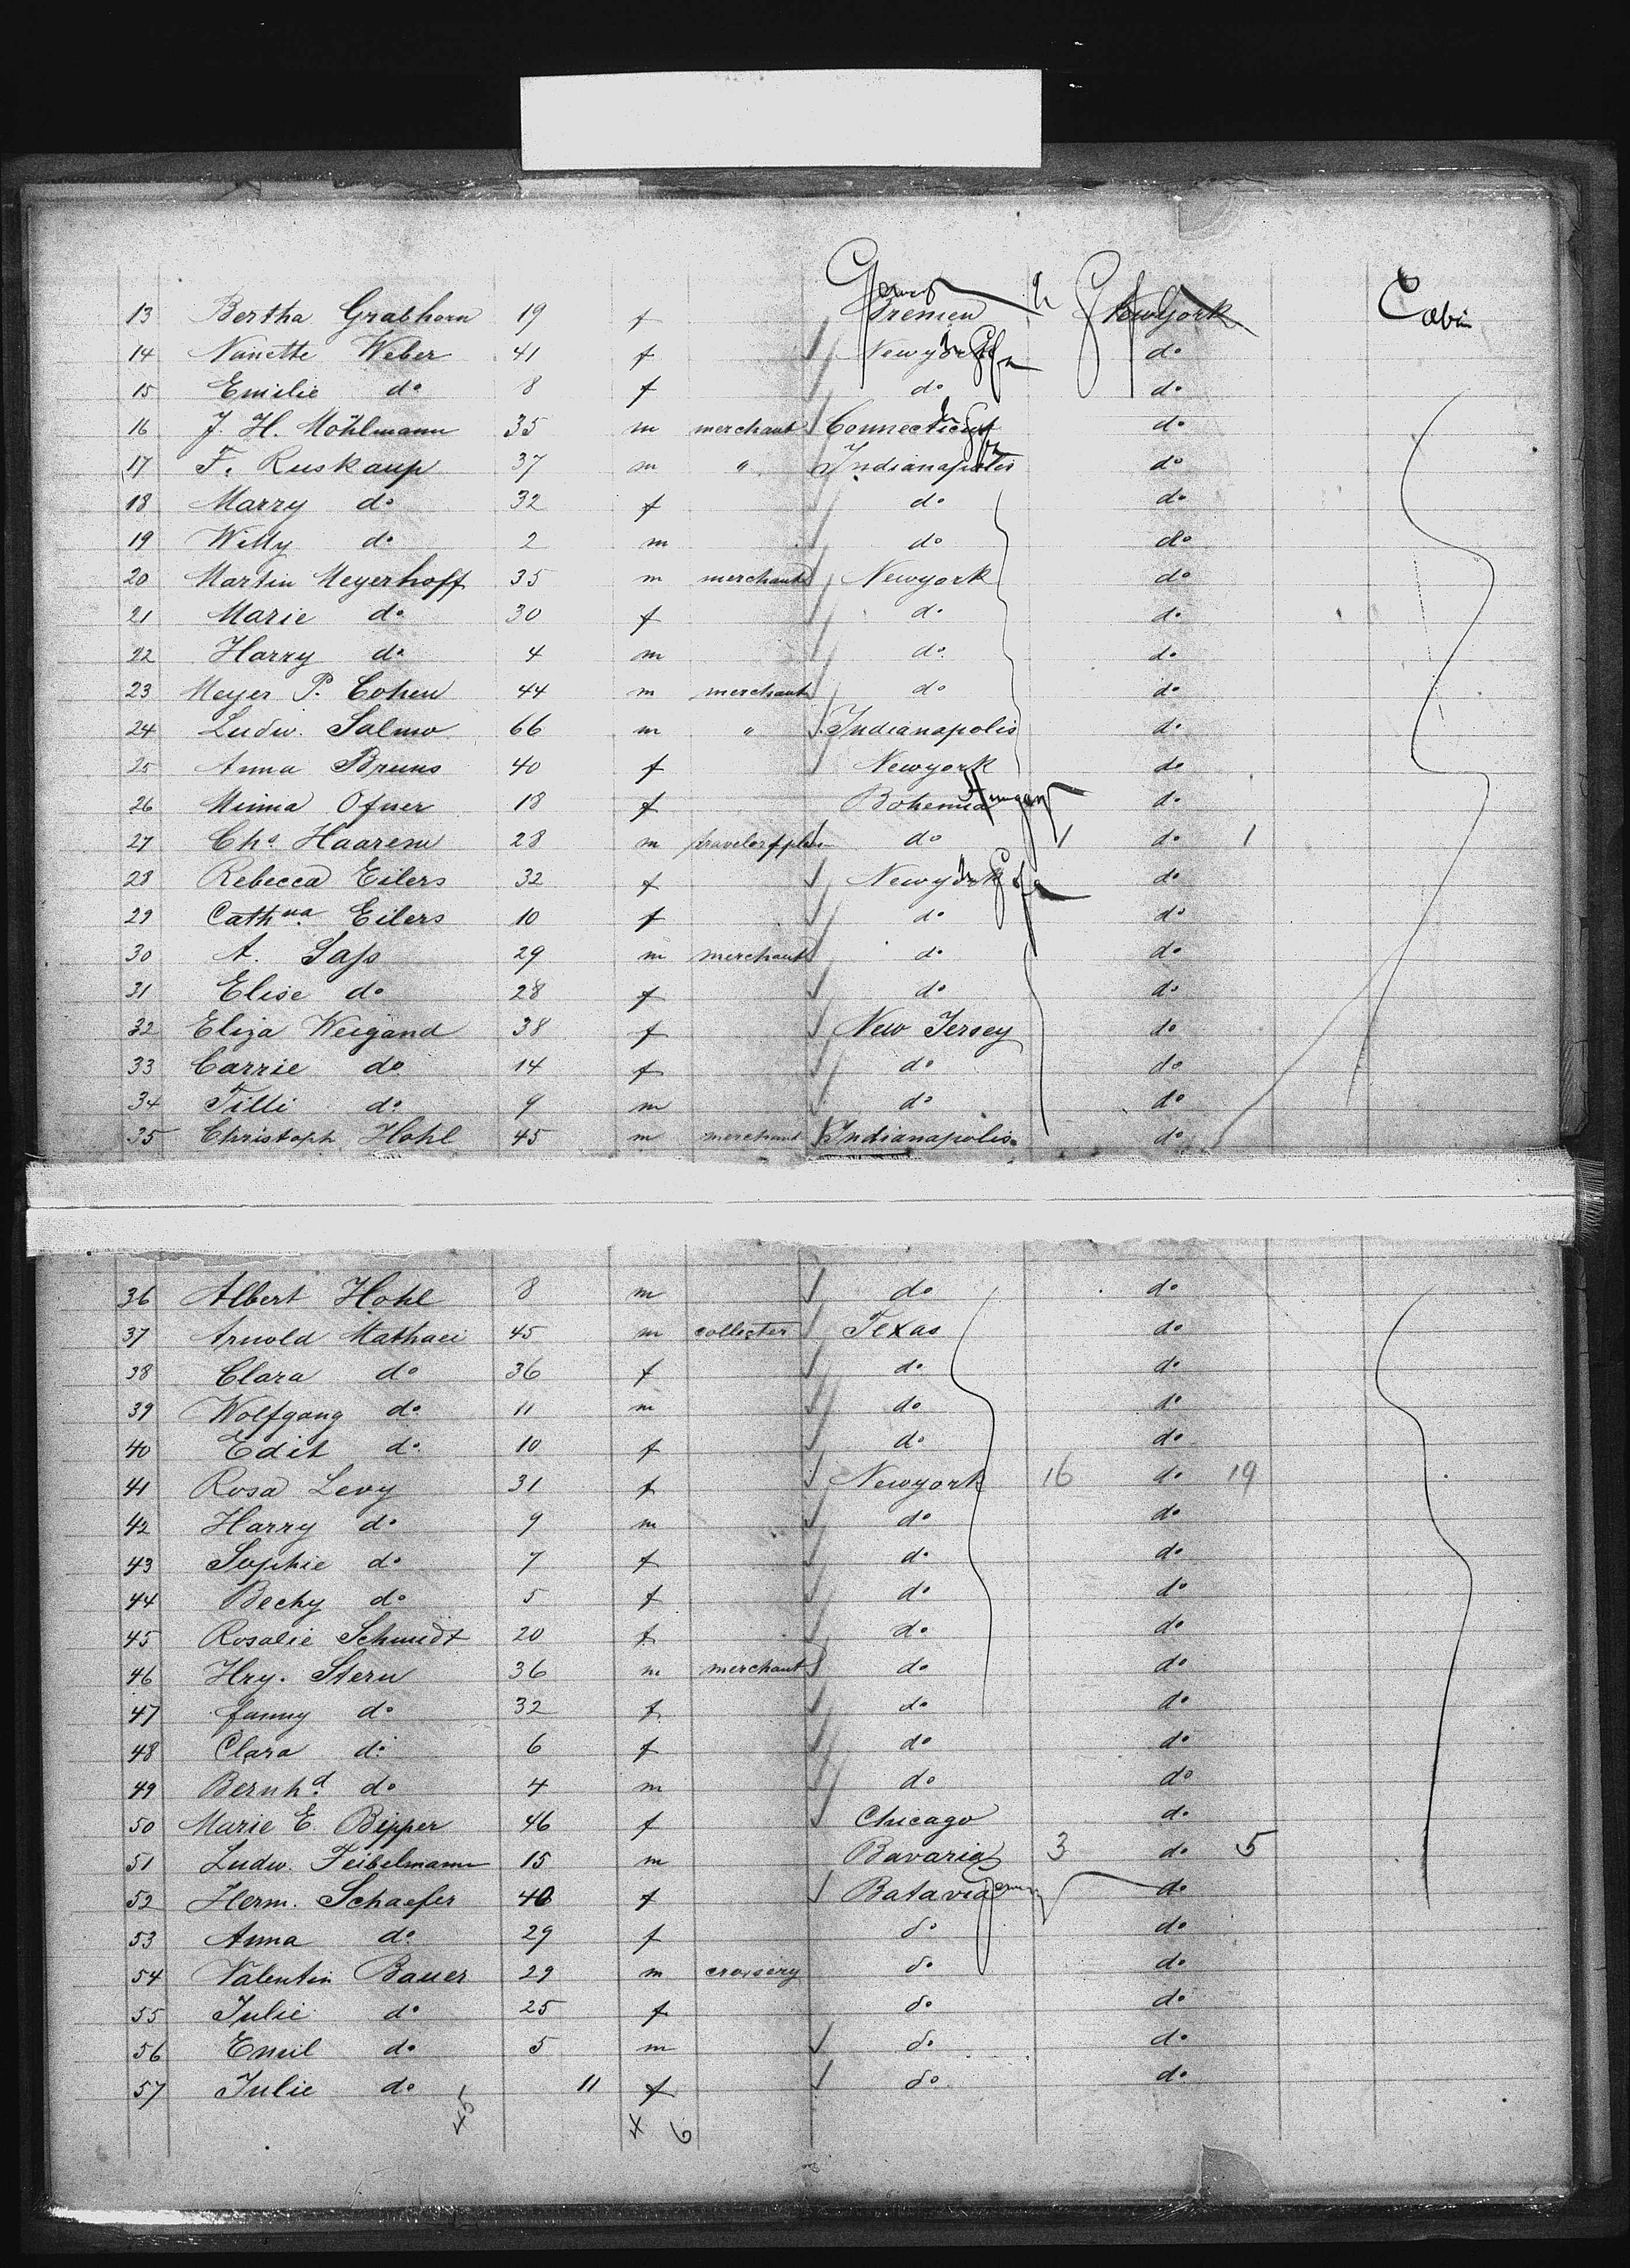 Germ
13 Bertha Grabhorn 19 f Bremen Newyork Cabin
14 Nanette Weber 41 f Newyork do
15 Emilie do 8 f do do
16 J. H. Möhlmann 35 m merchant Connecticut do
17 F. Ruskaup 37 m " Indianapolis do
18 Marry do 32 f do do
19 Willy do 2 m do do
20 Martin Meyerhoff 35 m merchant Newyork do
21 Marie do 30 f do do
22 Harry do 4 m do do
23 Meyer P. Cohen 44 m merchant do do
24 Ludw. Salmo 66 m " Indianapolis do
25 Anna Bruns 40 f Newyork do
26 Minna Ofner 18 f Bohemia Hungary do
27 Chs Haarem 28 m do 1 do 1
28 Rebecca Eilers 32 f Newyork do
29 Cathna Eilers 10 f do do
30 A. Sass 29 m merchant do do
31 Elise do 28 f do do
32 Eliza Weigand 38 f New Jersey do
33 Carrie do 14 f do do
34 Tilli do 9 m do do
35 Christoph Hohl 45 m merchant Indianapolis do
36 Albert Hohl 8 m do do
37 Arnold Mathaei 45 m collecter Texas do
38 Clara do 36 f do do
39 Wolfgang do 11 m do do
40 Edit do 10 f do do
41 Rosa Levy 31 f Newyork 16 do 19
42 Harry do 9 m do do
43 Sophie do 7 f do do
44 Bechy do 5 f do do
45 Rosalie Schmidt 20 f do do
46 Hry. Stern 36 m merchant do do
47 fanny do 32 f do do
48 Clara do 6 f do do
49 Bernhd. do 4 m do do
50 Marie E. Bipper 46 f Chicago do
51 Ludw. Feibelmann 15 m Bavaria 3 do 5
52 Herm. Schaefer 40 f Batavia Germ do
53 Anna do 29 f do do
54 Valentin Bauer 29 m do do
55 Julie do 25 f do do
56 Emil do 5 m do do
57 Julie do 11 f do do
45 4 6